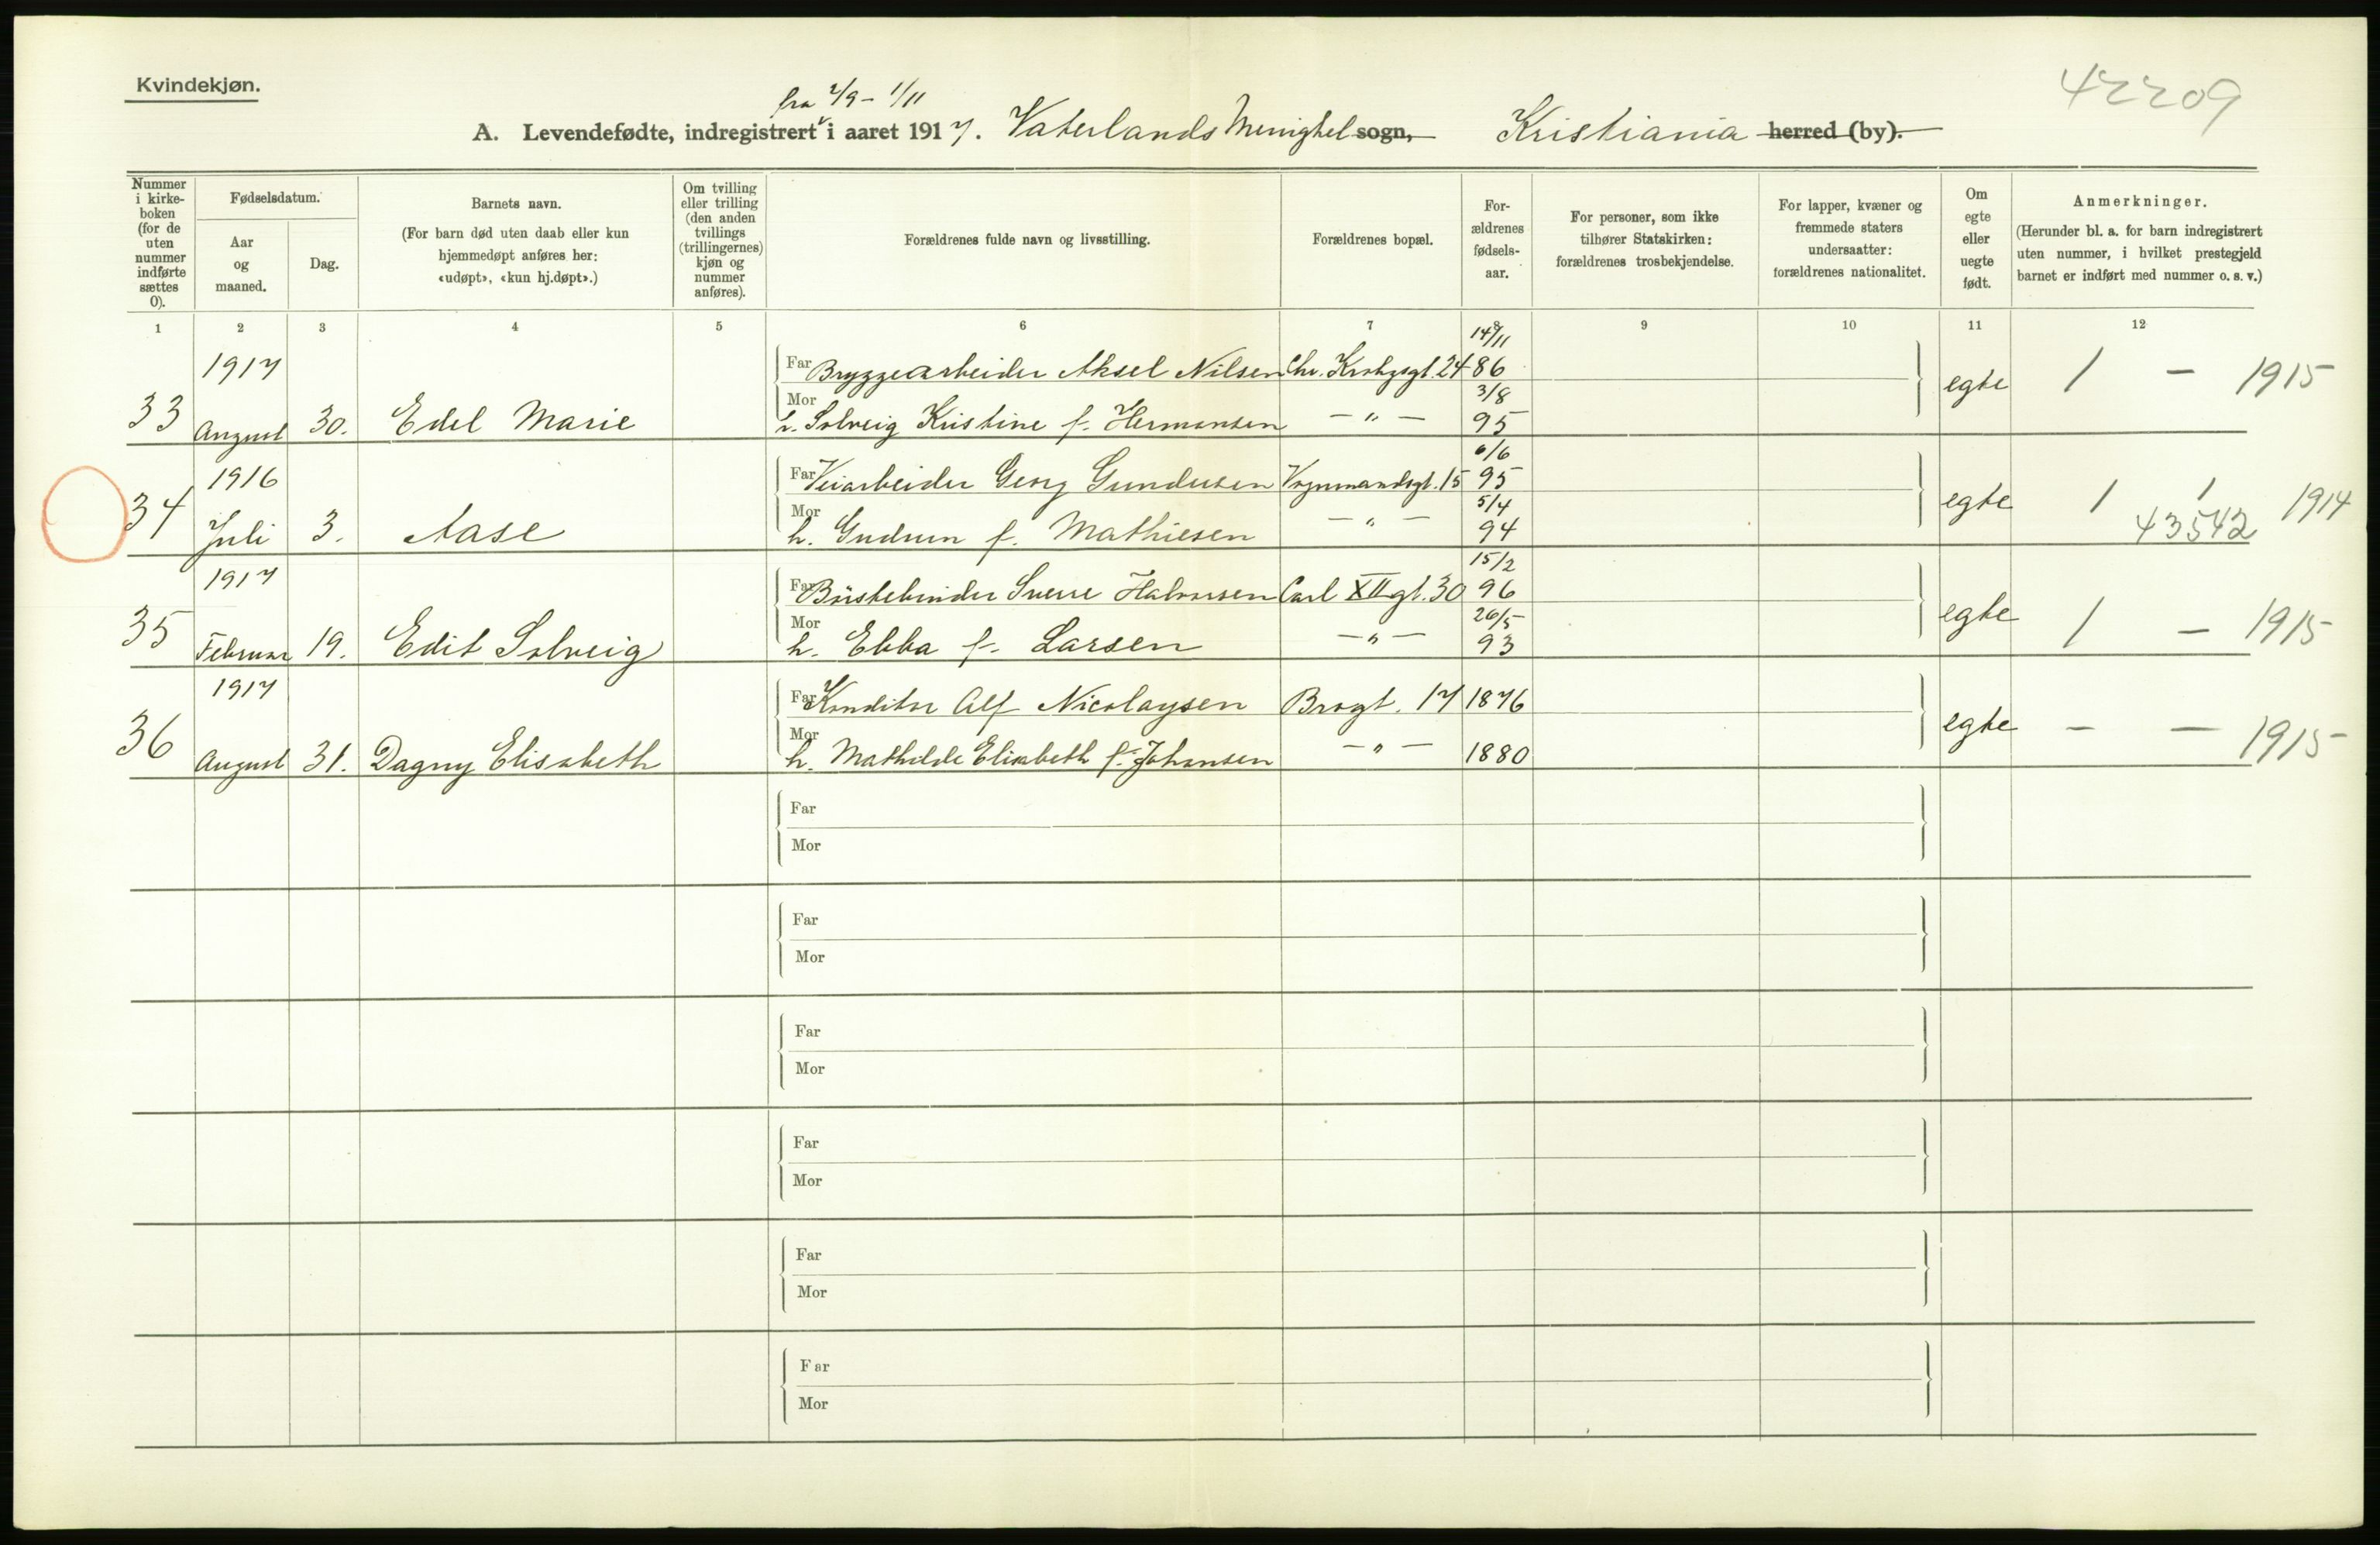 Kvindekjøn.
42209
fra 2/9 - 1/11
A. Levendefødte, indregistrert i aaret 1917. Vaterlands Menighet sogn, Kristiania herred (by).
Nummer i kirke-boken (for de uten nummer indførte sættes 0).
Fødselsdatum.
Aar og maaned.
Dag.
Barnets navn.
(For barn død uten daab eller kun hjemmedøpt anføres her: «udøpt», «kun hj.døpt».)
Om tvilling eller trilling (den anden tvillings (trillingernes) kjøn og nummer anføres).
Forældrenes fulde navn og livsstilling.
Forældrenes bopæl.
For-ældrenes fødsels-aar.
For personer, som ikke tilhører Statskirken: forældrenes trosbekjendelse.
For lapper, kvæner og fremmede staters undersaatter: forældrenes nationalitet.
Om egte eller uegte født.
Anmerkninger.
(Herunder bl. a. for barn indregistrert uten nummer, i hvilket prestegjeld barnet er indført med nummer o. s. v.)
1 2 3 4 5 6 7 8 9 10 11 12
14/11
1917 Far Bryggearbeider Aksel Nilsen Chr. Krohgsgt. 24 86 egte 1 - 1915
3/8
33 August 30. Edel Marie Mor h. Solveig Kristine f. Hermansen - " - 95
6/6
1916 Far Veiarbeider Georg Gundersen Vognmandsgt. 15 95 egte 1 1 1914
5/4
34 Juli 3. Aase Mor h. Gudrun f. Mathiesen - " - 94 43542
15/2
1917 Far Börstebinder Sverre Halvorsen Carl XII gt. 30 96 egte 1 - 1915
26/5
35 Februar 19. Edit Solveig Mor h. Ebba f. Larsen - " - 93
1917 Far Konditor Alf Nicolaysen Brogt. 17 1876 egte - - 1915
36 August 31. Dagny Elisabeth Mor h. Mathilde Elisabeth f. Johansen - " - 1880
Far
Mor
Far
Mor
Far
Mor
Far
Mor
Far
Mor
Far
Mor